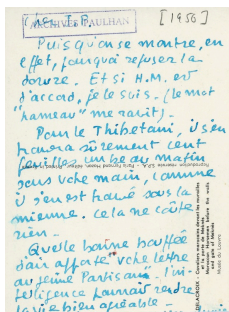 Cher J.P.
ARCHIVES PAULHAN
[1956]
Puisqu'on se montre, en
effet, pourquoi refuser la
dorure. Et si H.M. est
d'accord, je le suis. (le mot
"hameau" me ravit).
Pour le Thibétain, il s'en
trouvera sûrement cent
feuilles un beau matin
sous votre main, comme
il s'en est trouvé sous la
mienne. Cela ne coûte
rien —
Quelle bonne bouffée
d'air apporte votre lettre
au jeune Partisan. L'in-
telligence pourrait rendre
la vie bien agréable —
DELACROIX
Musée du Louvre